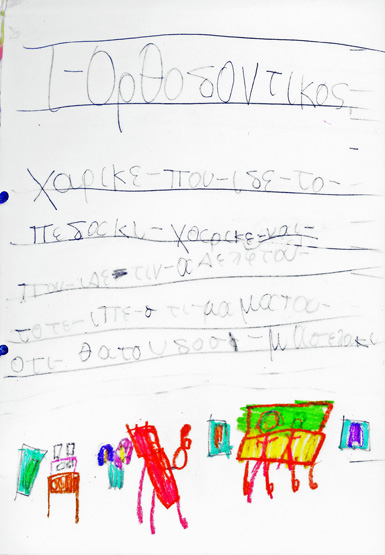 1-Ορθοδοντικος
χαρικε-που-ιδε-το-
πεδακι-χαρικε-και-
που-ιδε-τιν-αδελφτου-
τοτε-ιπε-στι-μαματου-
οτι-θατουδοσι-μασελακι